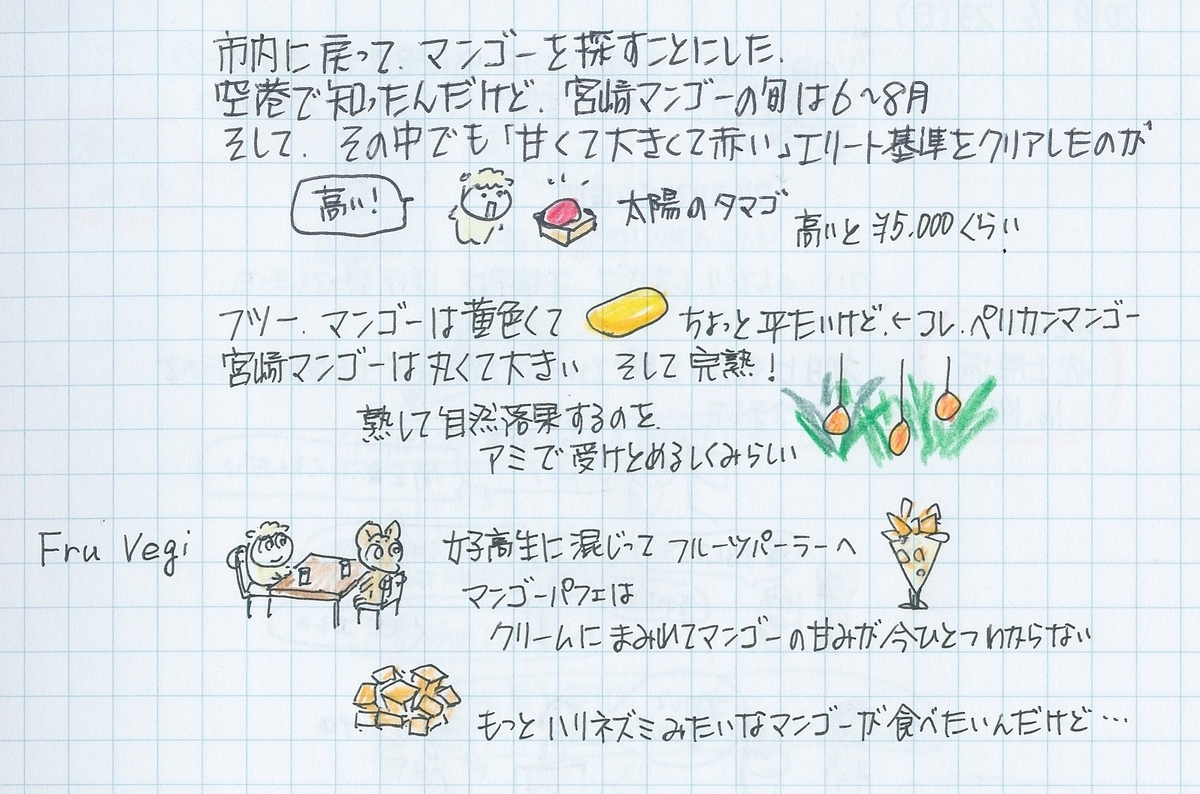 市内に戻って、マンゴーを探すことにした。
空港で知ったんだけど、宮崎マンゴーの旬は6〜8月
そして、その中でも「甘くて大きくて赤い」エリート基準をクリアしたのが
高い！
太陽のタマゴ
高いと¥5,000くらい
フツー、マンゴーは黄色くて
ちょっと平たいけど、←コレ、ペリカンマンゴー
宮崎マンゴーは丸くて大きい そして完熟！
熟して自然落果するのを
アミで受けとめるしくみらしい
Fru Vegi
女子高生に混じってフルーツパーラーへ
マンゴーパフェは
クリームにまみれてマンゴーの甘みが今ひとつわからない
もっとハリネズミみたいなマンゴーが食べたいんだけど…